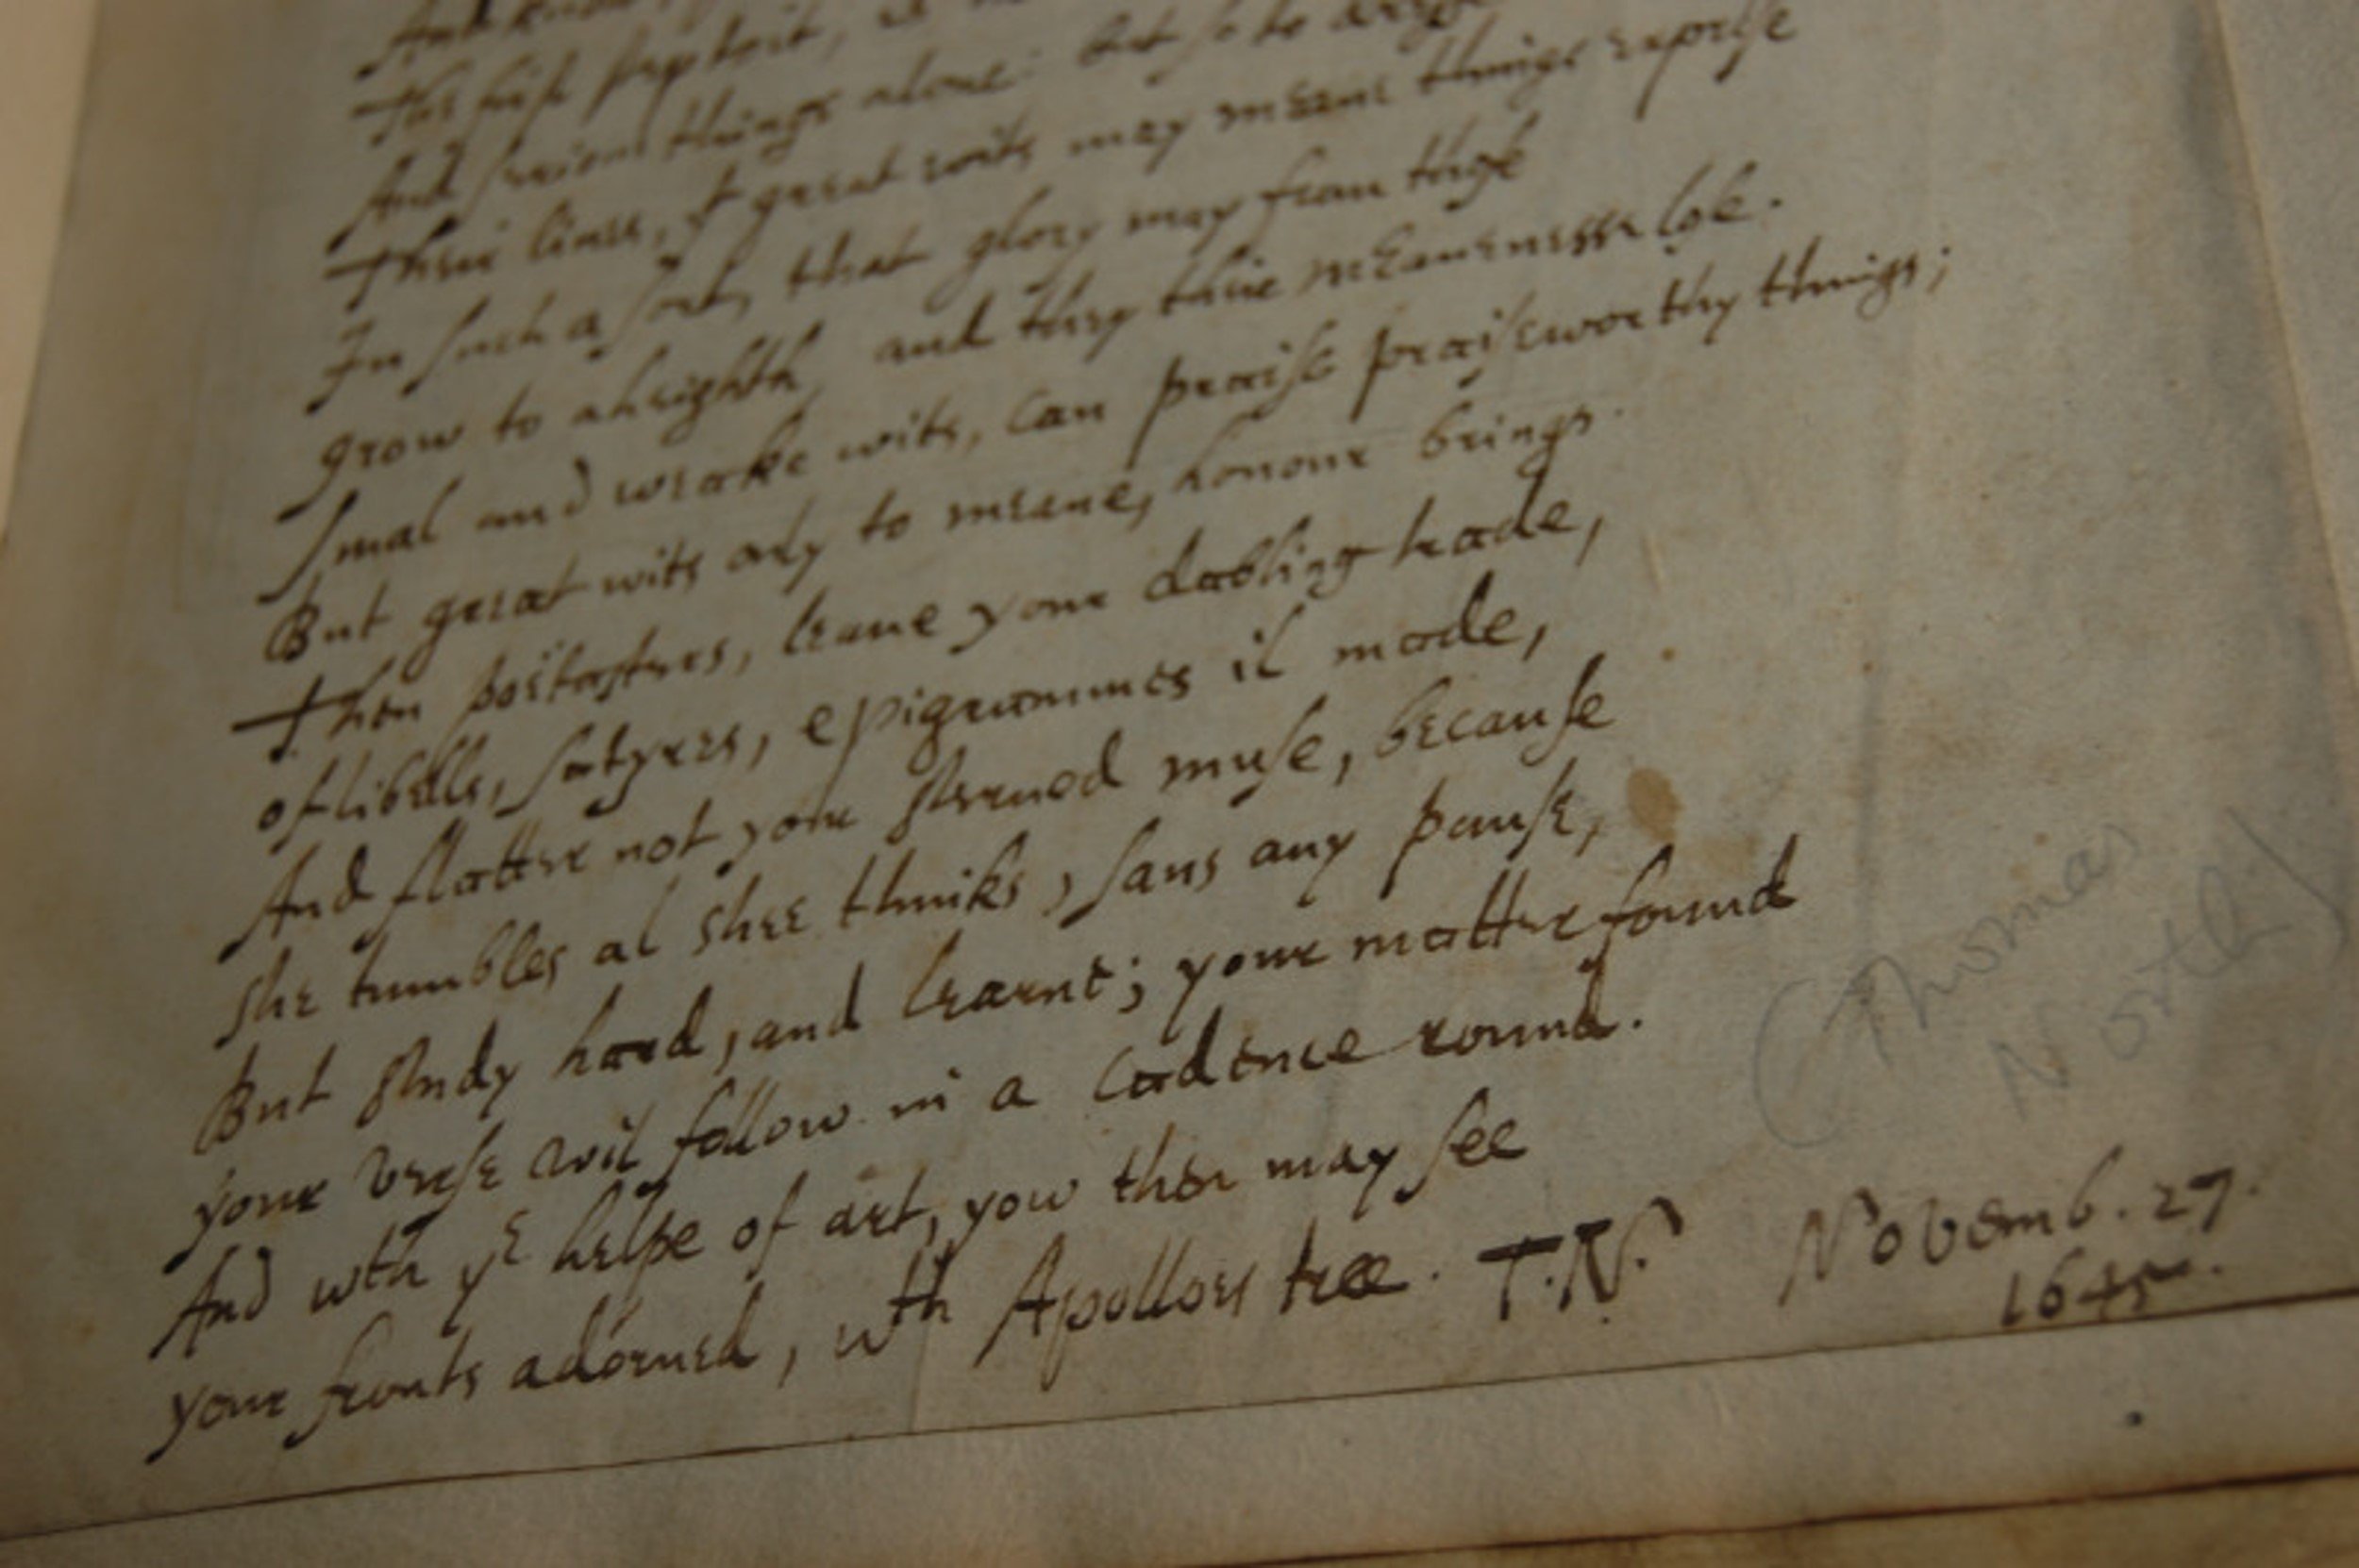 And
this first
And serious things alone: but so to
Their lines, yt great wits may meane things
In such a sort, that glory may from those
grow to a heighth, and they thire meanenesse lose.
Smal and weake wits, can praise praiseworthy things;
But great wits only to meane, honour brings.
Then poëtasters, leaue your dabling trade,
of libells, satyres, epigrammes il made,
And flatter not your sterued muse, because
she tumbles al shee thinks, sans any pause,
But study hard, and learne; your matter found
your verse wil follow in a cadence round.
And wth ye helpe of art, you then may see
your fronts adorned, wth Apolloes tree. T.N. Novemb. 27.
1645.
(Thomas
North)